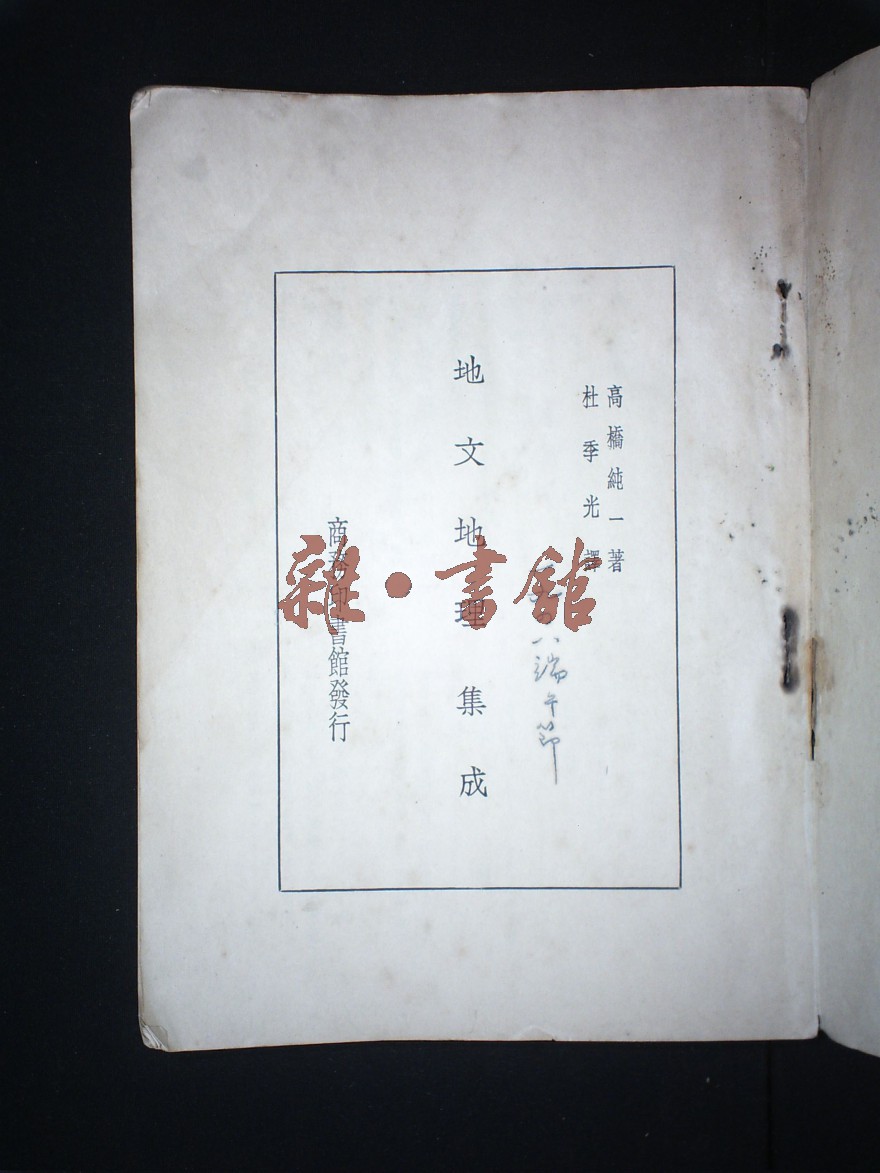 高橋純一著
杜季光譯
八端午節
地文地理集成
商務印書館發行
雜·書館